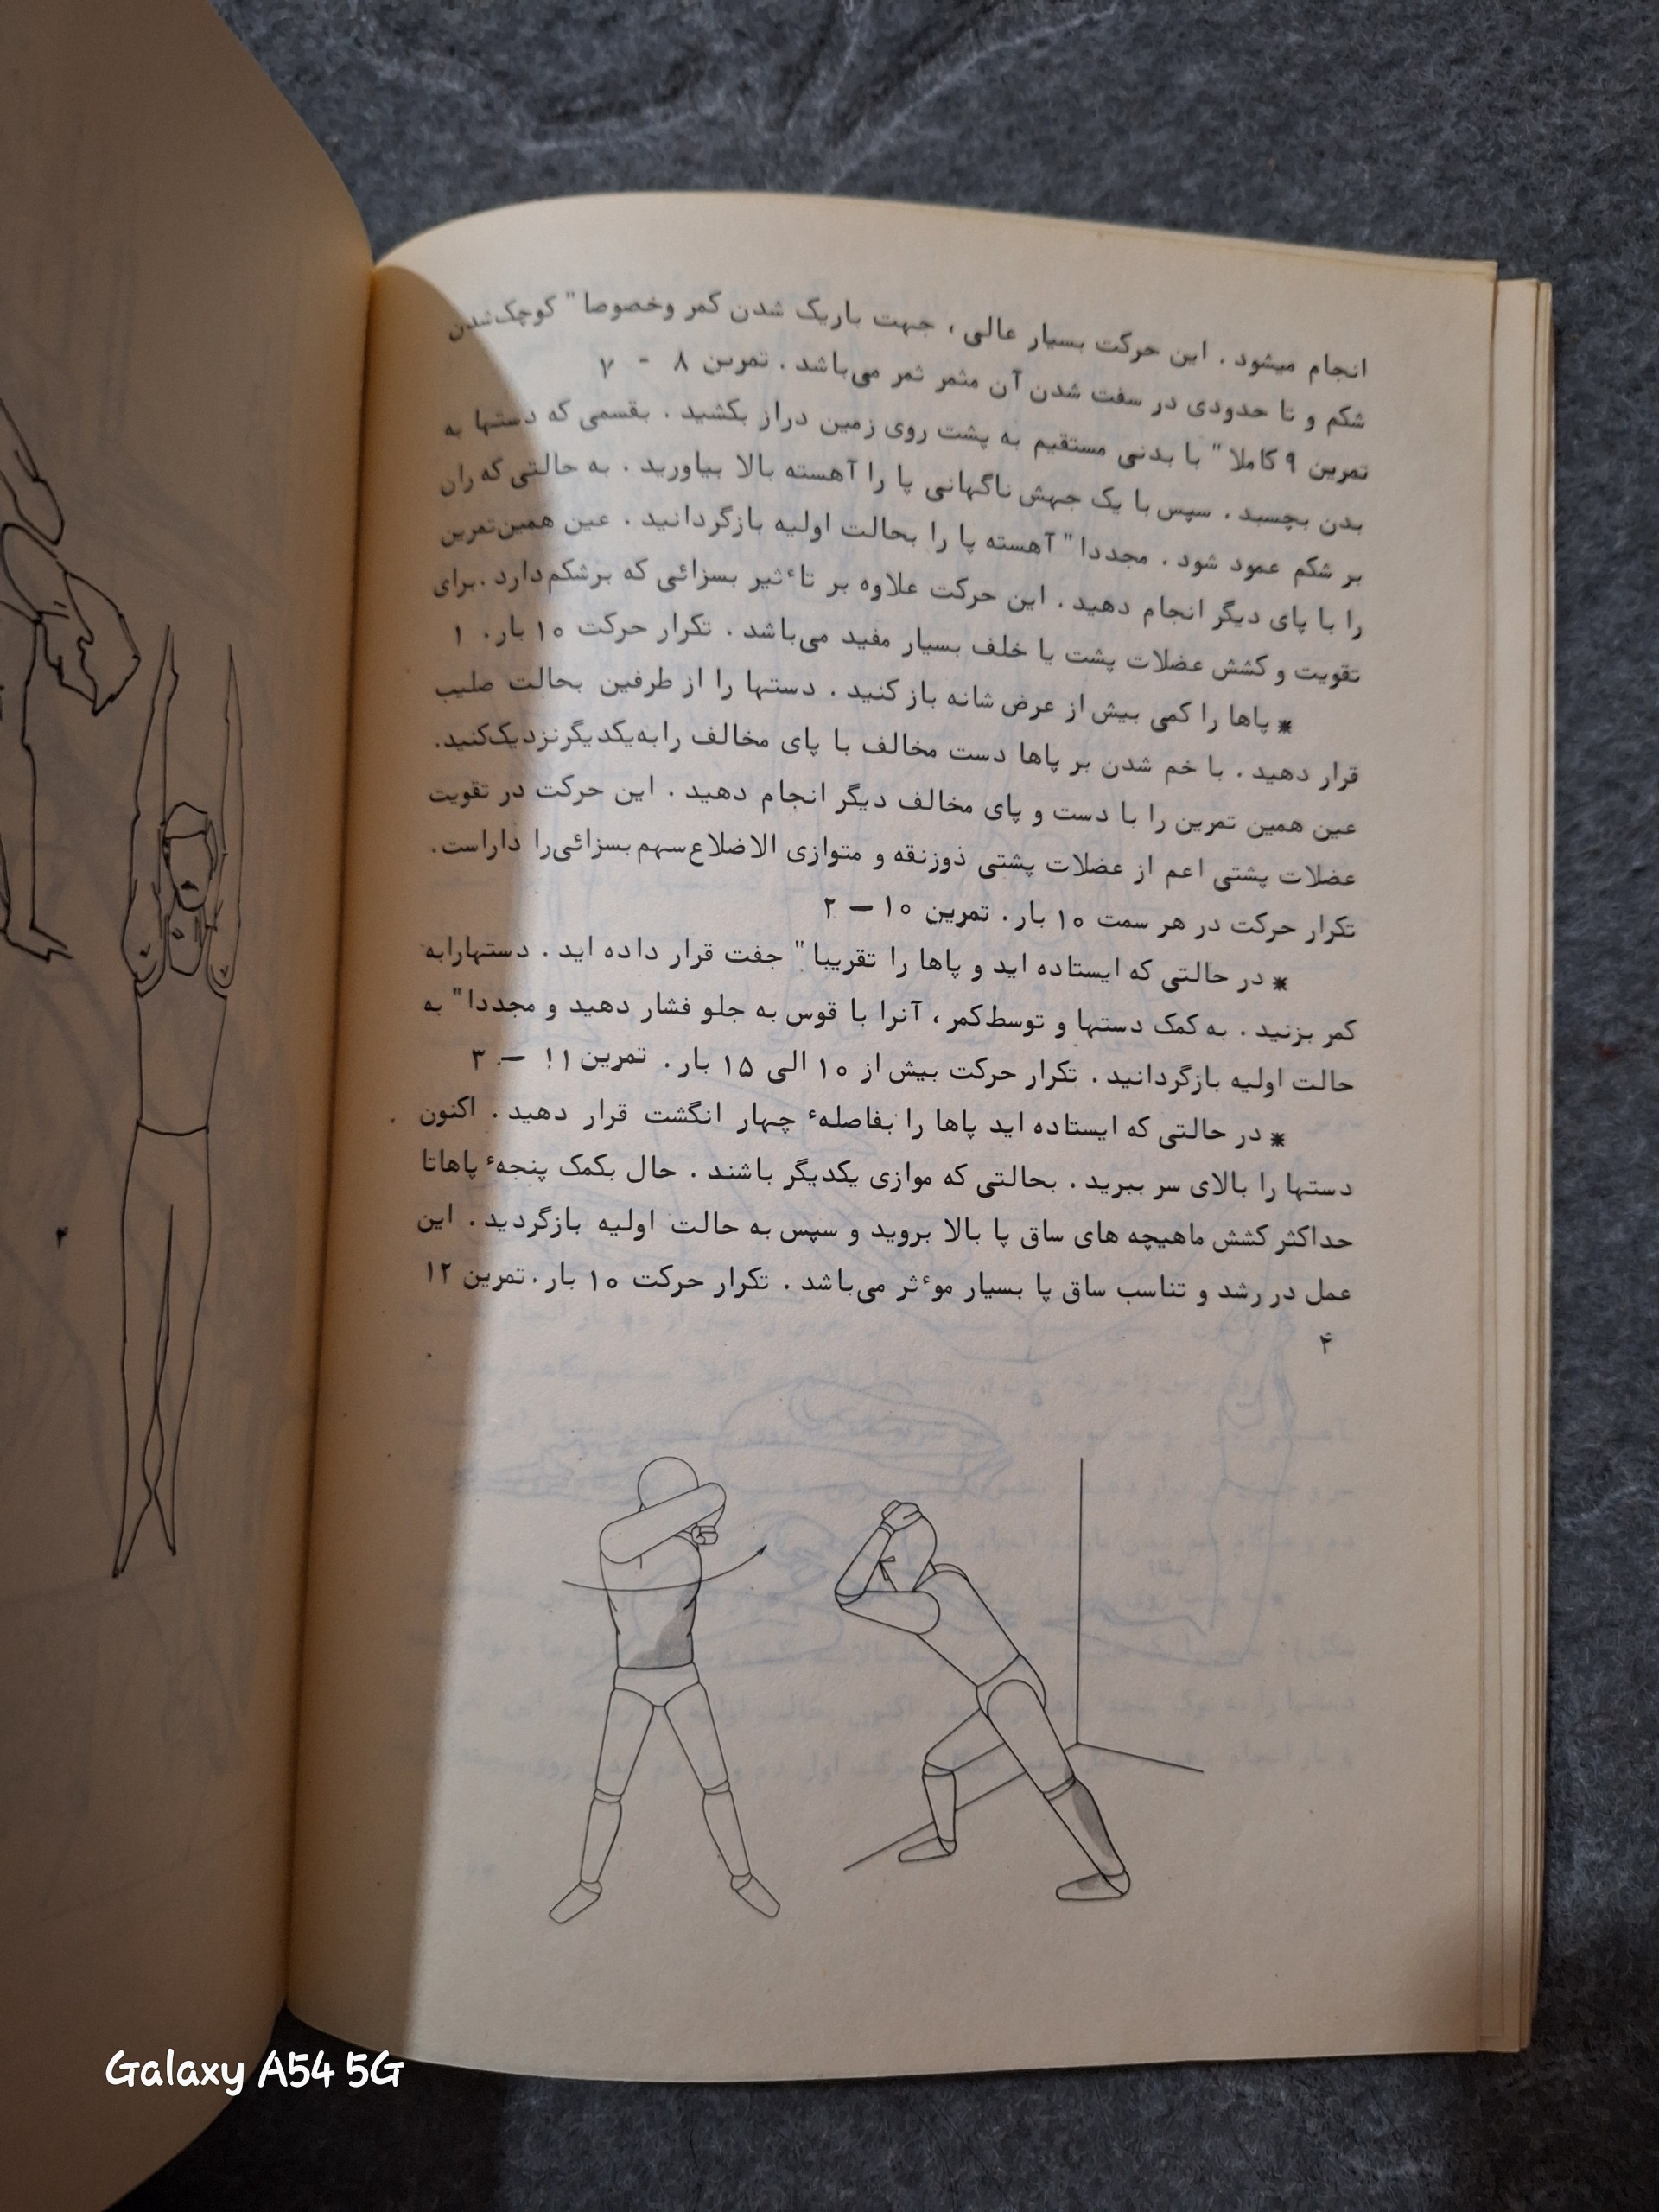 انجام میشود . این حرکت بسیار عالی ، جهت باریک شدن کمر وخصوصا" کوچک‌شدن
شکم و تا حدودی در سفت شدن آن مثمر ثمر می‌باشد . تمرین ۸ - ۷
تمرین ۹ کاملا" با بدنی مستقیم به پشت روی زمین دراز بکشید . بقسمی که دستها به
بدن بچسبد . سپس با یک جهش ناگهانی پا را آهسته بالا بیاورید . به حالتی که ران
بر شکم عمود شود . مجددا" آهسته پا را بحالت اولیه بازگردانید . عین همین‌تمرین
را با پای دیگر انجام دهید . این حرکت علاوه بر تاءثیر بسزائی که برشکم‌دارد .برای
تقویت و کشش عضلات پشت یا خلف بسیار مفید می‌باشد . تکرار حرکت ۱۰ بار. ۱
* پاها را کمی بیش از عرض شانه باز کنید . دستها را از طرفین بحالت صلیب
قرار دهید . با خم شدن بر پاها دست مخالف با پای مخالف را به‌یکدیگرنزدیک‌کنید.
عین همین تمرین را با دست و پای مخالف دیگر انجام دهید . این حرکت در تقویت
عضلات پشتی اعم از عضلات پشتی ذوزنقه و متوازی الاضلاع سهم بسزائی‌را داراست.
تکرار حرکت در هر سمت ۱۰ بار. تمرین ۱۰ — ۲
* در حالتی که ایستاده اید و پاها را تقریبا" جفت قرار داده اید . دستهارابه
کمر بزنید . به کمک دستها و توسط‌کمر، آنرا با قوس به جلو فشار دهید و مجددا" به
حالت اولیه بازگردانید . تکرار حرکت بیش از ۱۰ الی ۱۵ بار . تمرین ۱۱ — ۳
* در حالتی که ایستاده اید پاها را بفاصلهء چهار انگشت قرار دهید . اکنون
دستها را بالای سر ببرید . بحالتی که موازی یکدیگر باشند . حال بکمک پنجهء پاهاتا
حداکثر کشش ماهیچه های ساق پا بالا بروید و سپس به حالت اولیه بازگردید . این
عمل در رشد و تناسب ساق پا بسیار موءثر می‌باشد . تکرار حرکت ۱۰ بار . تمرین ۱۲
۴
۴
Galaxy A54 5G